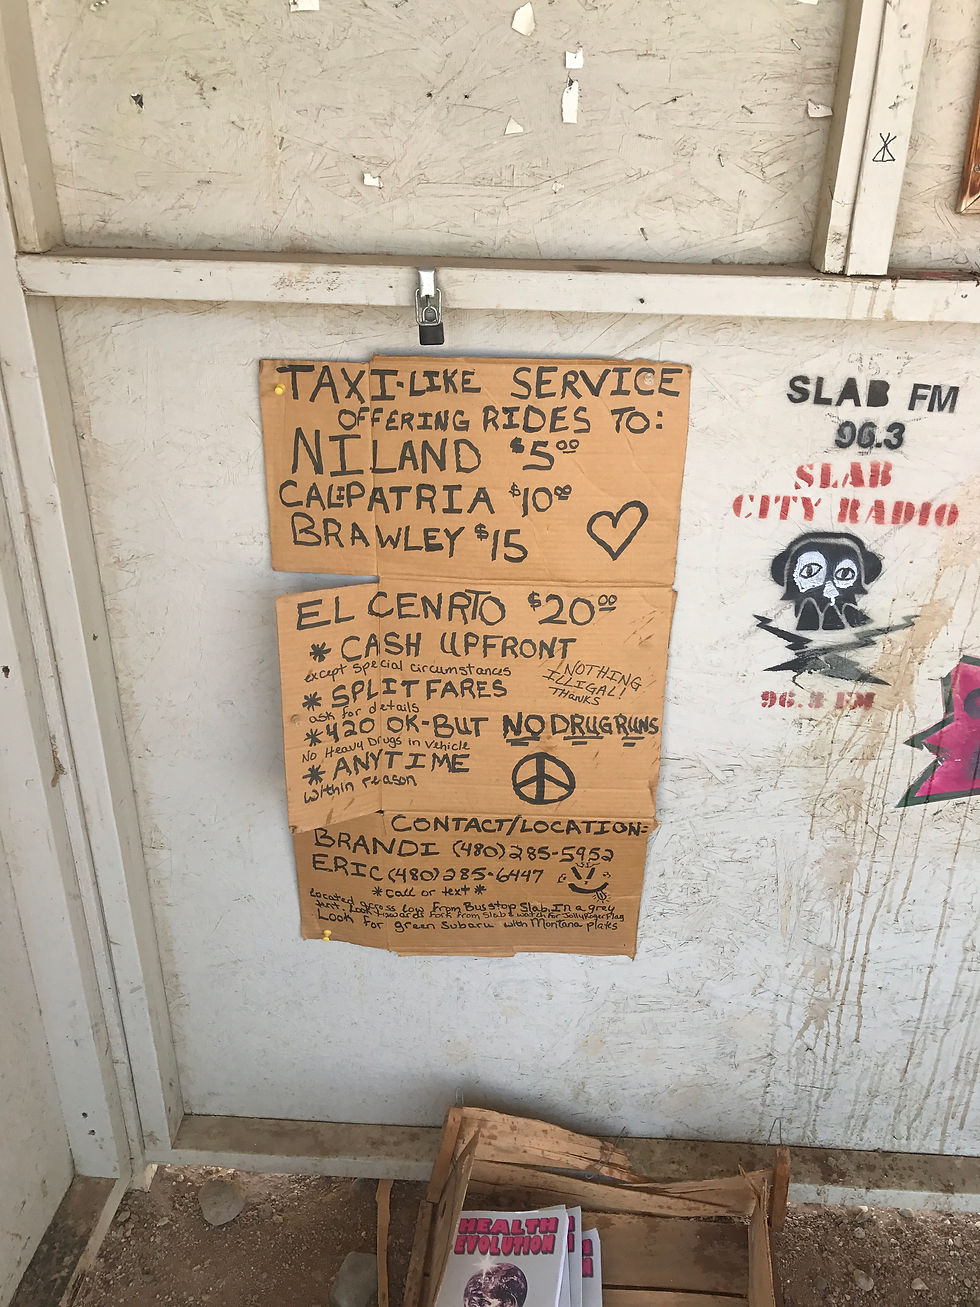 TAXI-LIKE SERVICE
OFFERING RIDES TO:
NILAND $5⁰⁰
CALIPATRIA $10⁰⁰
BRAWLEY $15
EL CENRTO $20⁰⁰
* CASH UPFRONT
except special circumstances
NOTHING
ILLIGAL!
THANKS
* SPLIT FARES
ask for details
*420 OK-BUT NO DRUG RUNS
No Heavy Drugs in vehicle
* ANYTIME
within reason
CONTACT/LOCATION:
BRANDI (480) 285-5952
ERIC (480) 285-6447
*call or text*
Located across Low From Bus stop Slab, In a grey
tent. Look towards Fork From Slab & watch for Jolly Roger Flag
Look for green Subaru with Montana plates
SLAB FM
96.3
SLAB
CITY RADIO
96.3 FM
HEALTH
EVOLUTION